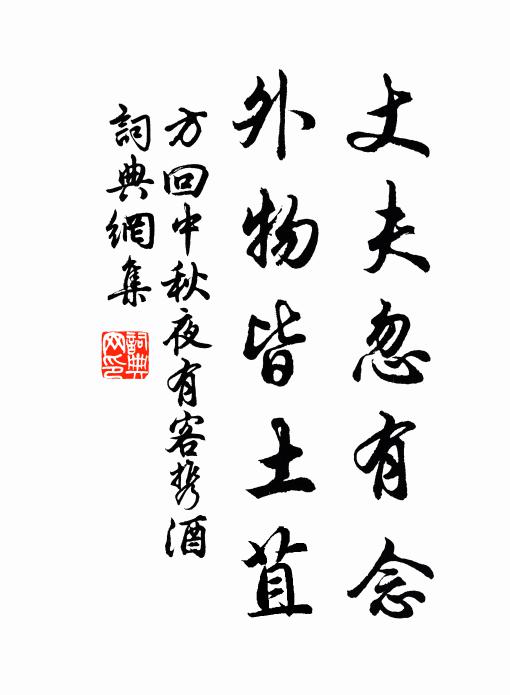 丈夫忽有念
外物皆土苴
方回中秋夜有客携酒
詞典網集
詞典網印